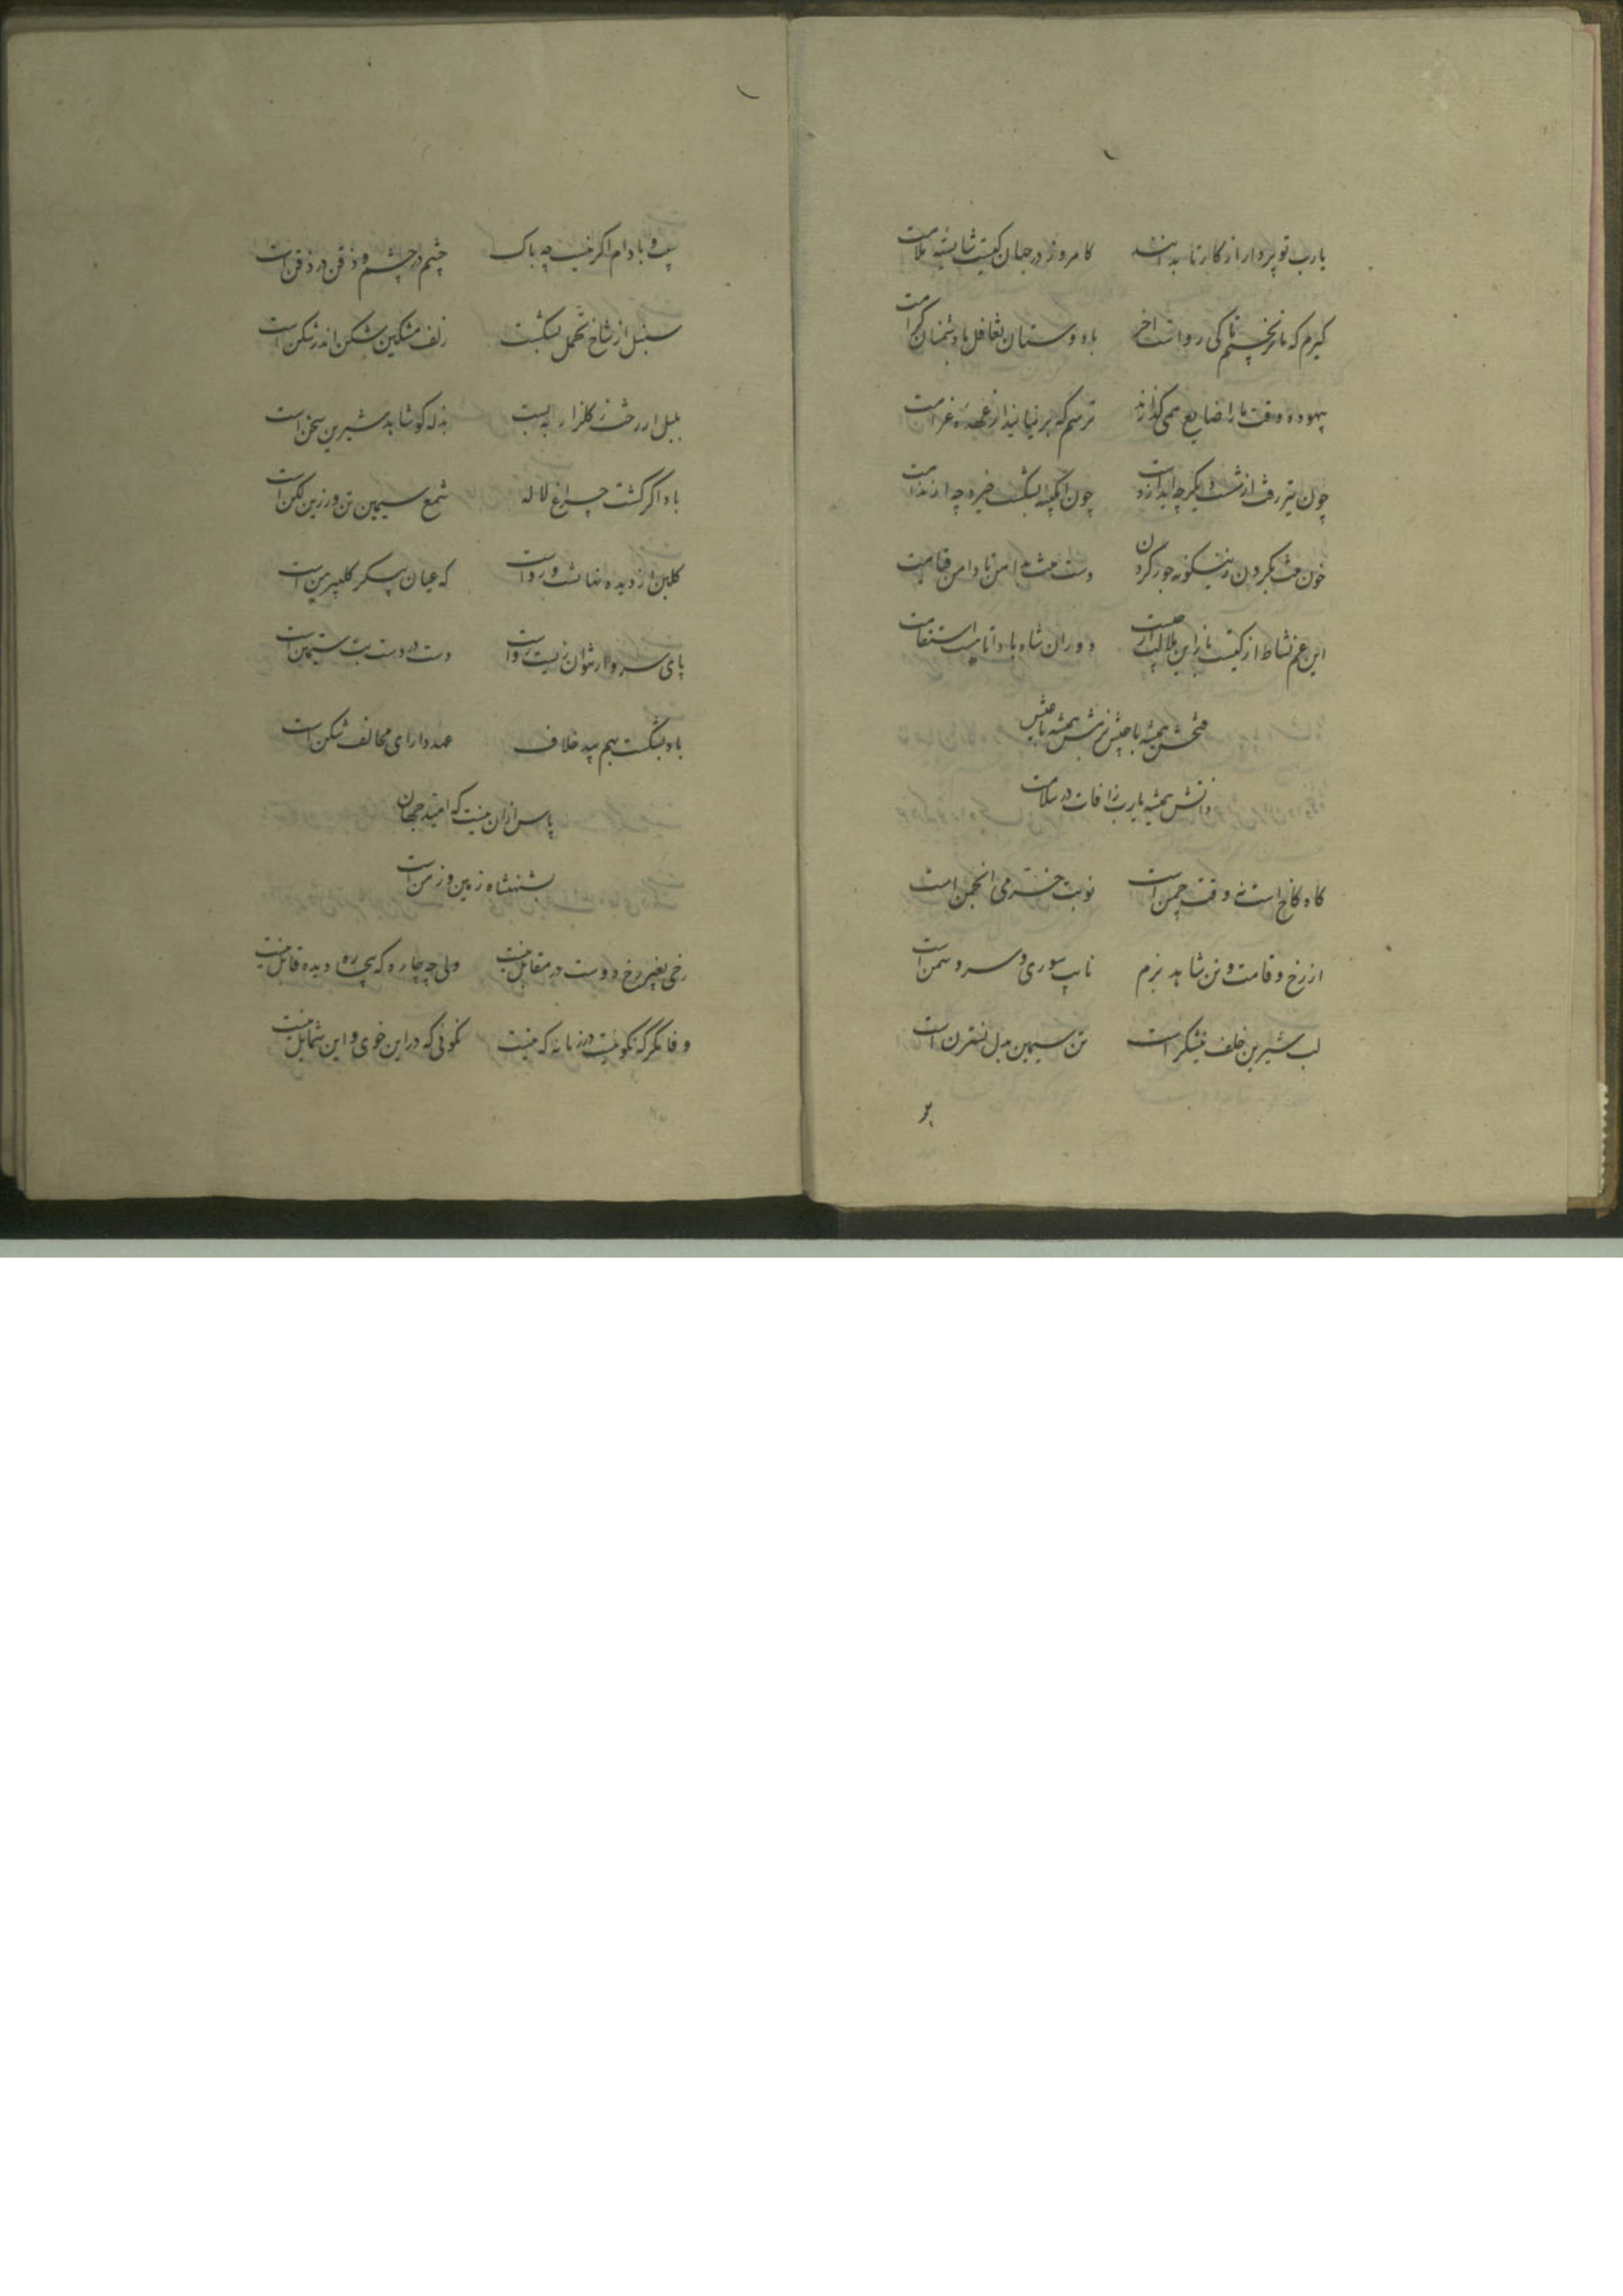 یارب تو پرده ازکار تا بدانند کامروز در جهان کیست شایسته ملامت
کیرم که ما نرنجیم تا کی رواست اخر با دوستان تغافل با دشمنان کرامت
بیهوده وقت ما را ضایع همی کذارند ترسم که بر نیایند از عهده غرامت
چون تیر رفت از شست دیگر چه چون ابکینه بشکست خیزد چه از ندامت
خون بگردن زینگونه جور کردن دست منت بدامن تا دامن قیامت
این غم نشاط از کیست باز این بلا پی چیست دوران شاه بادا تا باشد استقامت
فتحش همیشه با جیش نزمش همیشه با عیش
ذاتش همیشه یارب زافات در سلامت
گاه کاخ است نه وقت چمن است نوبت خرمی انجمن است
از رخ و قامت و تن شاهد بزم نایب سوری و سرو سمن است
لب شیرین خلف نیشکر است تن سیمین بدل نسترن است
پسته و بادام اگر نیست چه باک چشم در چشم و ذقن در ذقن است
سنبل از شاخ تحمل بشکست زلف مشکین شکن اندر شکن است
بلبل ار رخت ز کلزار ببست بذله کو شاهد شیرین سخن است
باد اگر کشت چراغ لاله شمع سیمین تن و زرین لکن است
کلبن از دیده نهانست رواست که عیان پیکر کلپیرهن است
پای سرو ار نتوان زیست رواست دست در دست بت سیمتن است
باد بشکست بهم بید خلاف عهد دارای مخالف شکن است
پاس ازان نیست که امید جهان
بشهنشاه زمین و زمن است
رخی بغیر رخ دوست در مقابل نیست ولی چه چاره که بیچاره دیده قابل نیست
وفا مگر که نکو نیست در زمانه که نیست نکوئی که در این خوی و این شمایل نیست